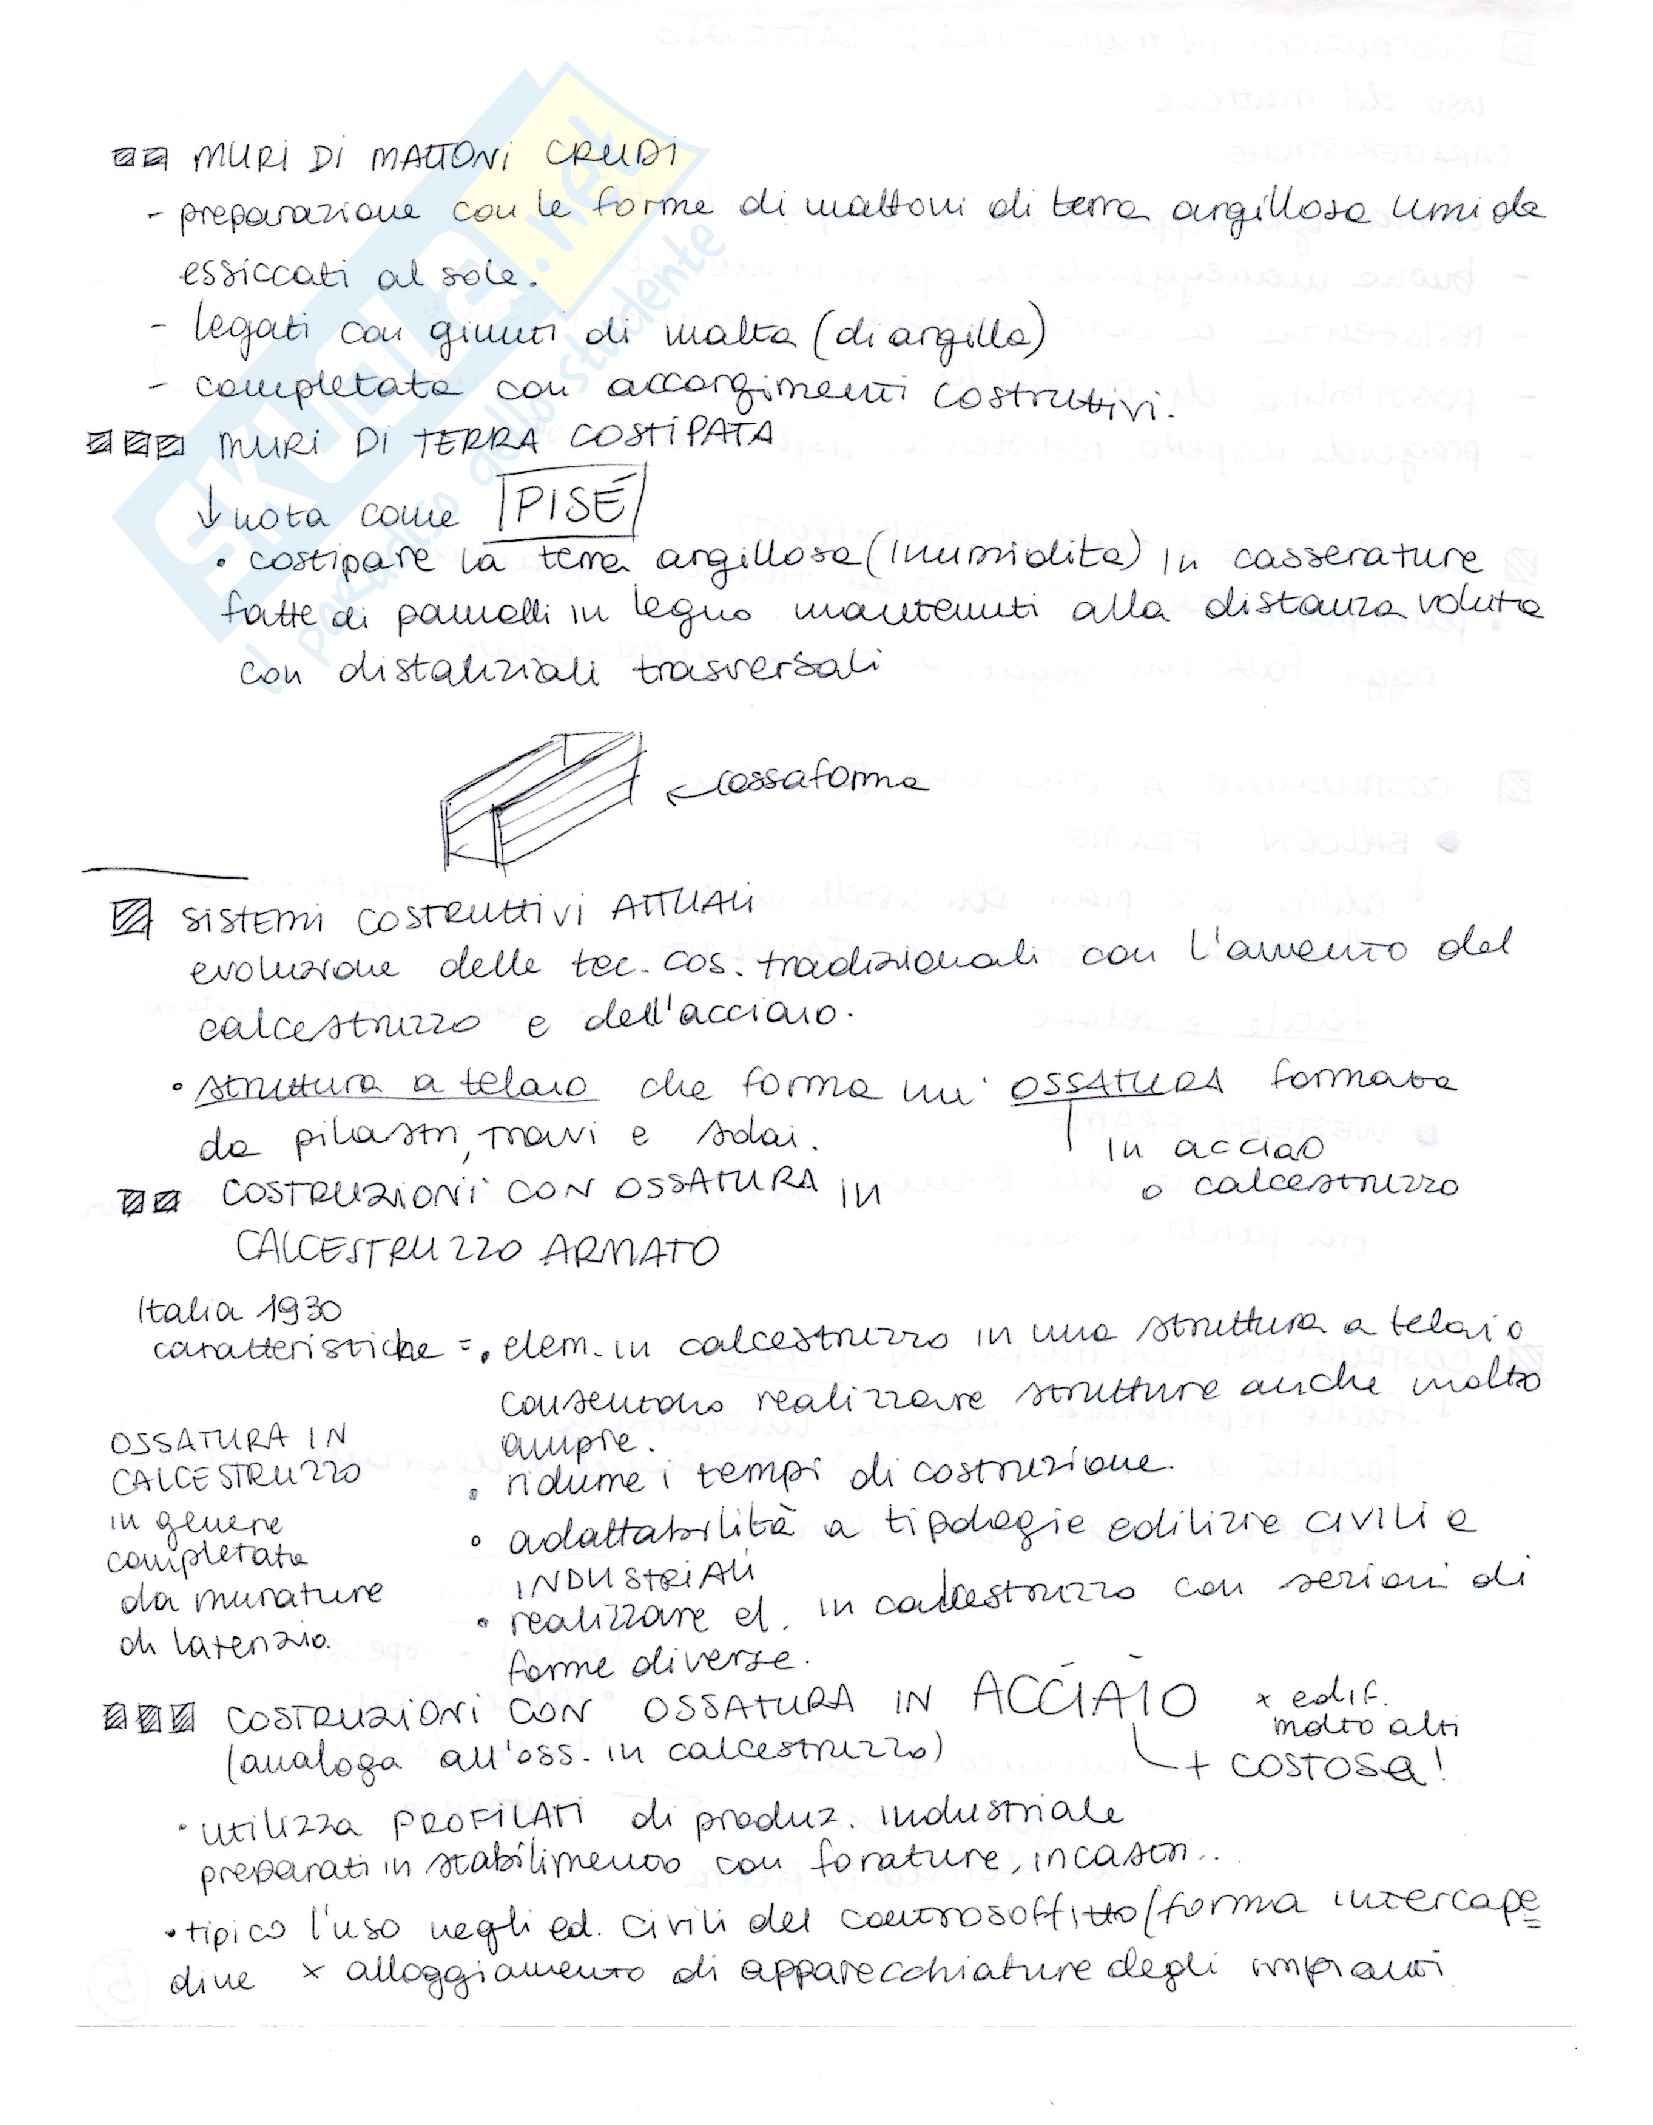 MURI DI MATTONI CRUDI
- preparazione con le forme di mattoni di terra argillosa umida
essiccati al sole.
- legati con giunti di malta (di argilla)
- completata con accorgimenti costruttivi.
MURI DI TERRA COSTIPATA
↓ nota come PISÉ
• costipare la terra argillosa (inumidita) in casserature
fatte di pannelli in legno mantenuti alla distanza voluta
con distanziali trasversali
← cassaforma
SISTEMI COSTRUTTIVI ATTUALI
evoluzione delle tec. cos. tradizionali con l'avvento del
calcestruzzo e dell'acciaio.
• struttura a telaio che forma un' OSSATURA formata
da pilastri, travi e solai.
in acciao
o calcestruzzo
COSTRUZIONI CON OSSATURA in
CALCESTRUZZO ARMATO
Italia 1930
caratteristiche = • elem. in calcestruzzo in una struttura a telaio
consentono realizzare strutture anche molto
ampie.
• ridurre i tempi di costruzione.
• adattabilità a tipologie edilizie civili e
INDUSTRIALI
• realizzare el. in calcestruzzo con sezioni di
forme diverse.
OSSATURA IN
CALCESTRUZZO
in genere
completata
da murature
di laterizio.
COSTRUZIONI CON OSSATURA IN ACCIAIO x edif.
molto alti
(analoga all'oss. in calcestruzzo)
+ COSTOSA!
• utilizza PROFILATI di produz. industriale
preparati in stabilimento con forature, incastri..
• tipico l'uso negli ed. civili del controsoffitto (forma intercape
dine x alloggiamento di apparecchiature degli impianti
SKUOLA.net
il paradiso dello studente